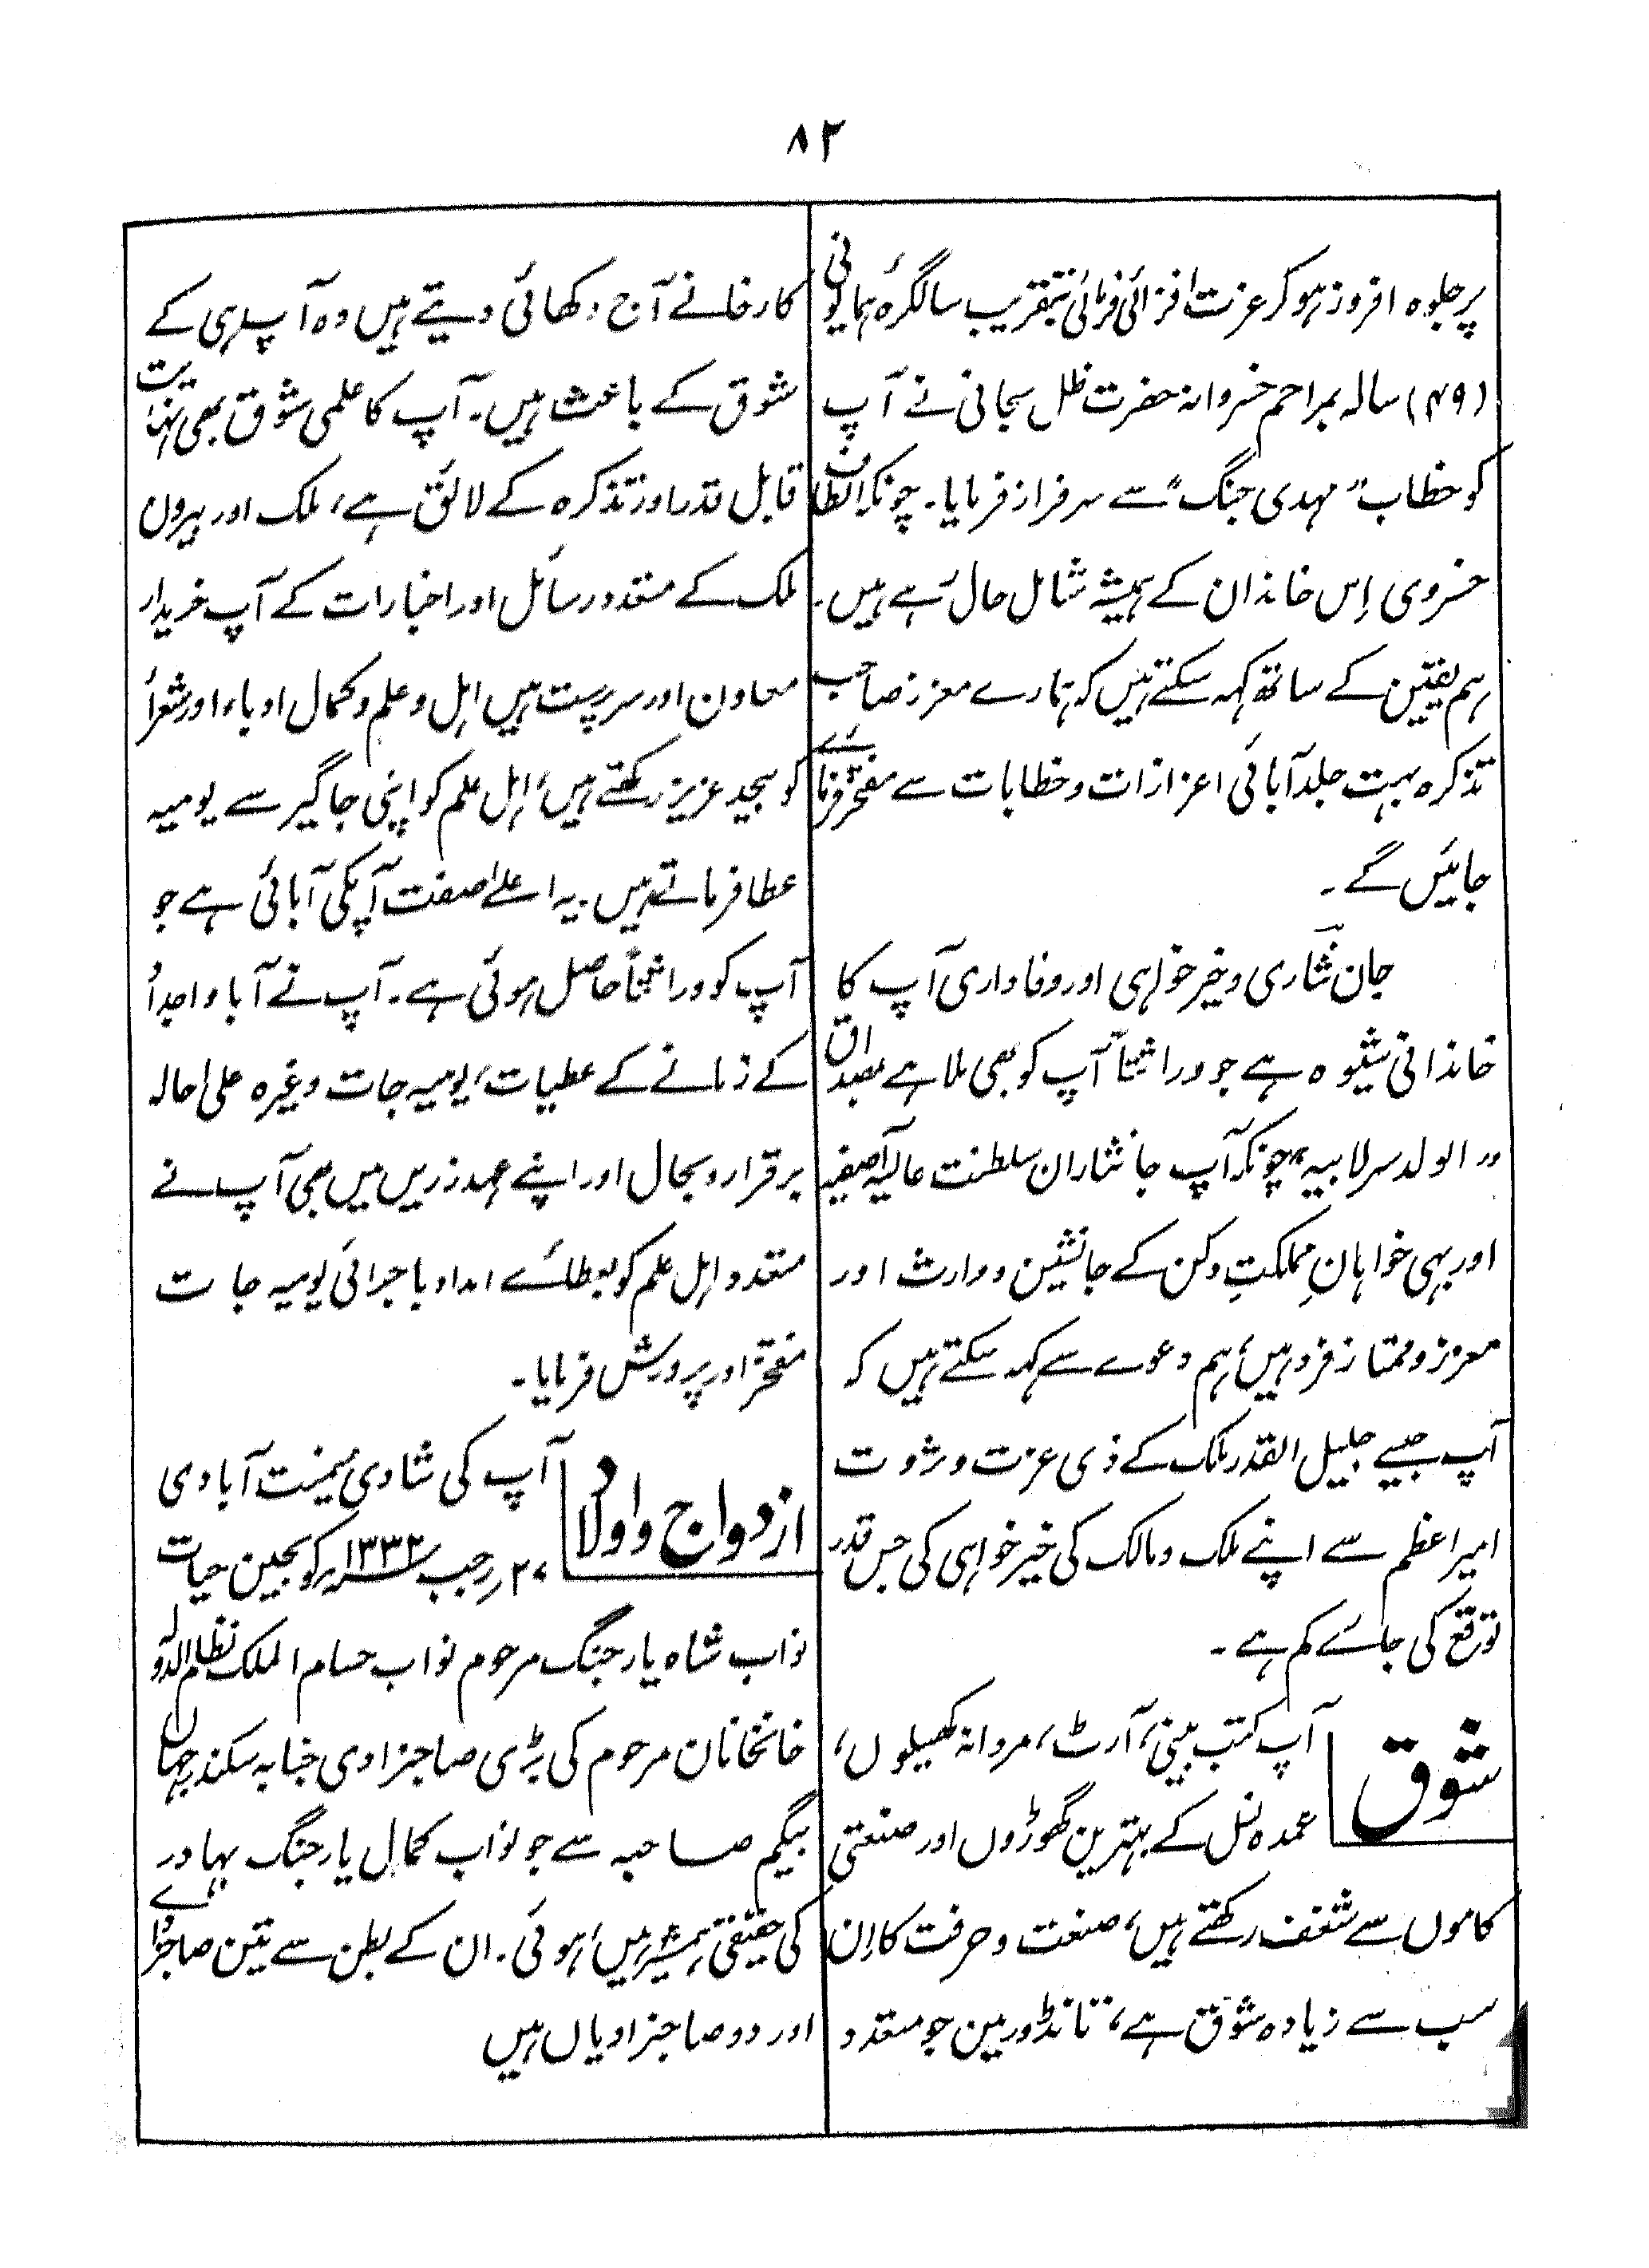 ۸۲
پر جلوہ افروز ہو کر عزت افزائی فرمائی بتقریب سالگرہ ہمایونی
(۴۹) سالہ بمراحم خسروانہ حضرت ظل سبحانی نے آپ
کو خطاب "مہدی جنگ" سے سرفراز فرمایا۔ چونکہ الطاف
خسروی اِس خاندان کے ہمیشہ شامل حال رہے ہیں۔
ہم یقین کے ساتھ کہہ سکتے ہیں کہ ہمارے معزز صاحب
تذکرہ بہت جلد آبائی اعزازات و خطابات سے مفتخر فرمائے
جائیں گے۔
جان نثاری و خیر خواہی اور وفاداری آپ کا
خاندانی شیوہ ہے جو وراثتاً آپ کو بھی ملا ہے بمصداق
"الولد سر لابیہ" چونکہ آپ جانثاران سلطنت عالیہ آصفیہ
اور بہی خواہانِ مملکتِ دکن کے جانشین و وارث اور
معزز و ممتاز فرد ہیں، ہم دعوے سے کہہ سکتے ہیں کہ
آپ جیسے جلیل القدر ملک کے ذی عزت و ثروت
امیر اعظم سے اپنے ملک و مالک کی خیر خواہی کی جس قدر
توقع کی جائے کم ہے۔
شوق
آپ کتب بینی، آرٹ، مردانہ کھیلوں،
عمدہ نسل کے بہترین گھوڑوں اور صنعتی
کاموں سے شغف رکھتے ہیں، صنعت و حرفت کا اِن
سب سے زیادہ شوق ہے، تانڈور میں جو متعدد
کارخانے آج دکھائی دیتے ہیں وہ آپ ہی کے
شوق کے باعث ہیں۔ آپ کا علمی شوق بھی نہایت
قابل قدر اور تذکرہ کے لائق ہے، ملک اور بیرون
ملک کے متعدد رسائل اور اخبارات کے آپ خریدار
معاون اور سرپرست ہیں اہل و علم و کمال ادباء اور شعرأ
کو بیحد عزیز رکھتے ہیں، اہل علم کو اپنی جاگیر سے یومیہ
عطا فرماتے ہیں۔ یہ اعلےٰ صفت آپکی آبائی ہے جو
آپ کو وراثتاً حاصل ہوئی ہے۔ آپ نے آبا و اجداد
کے زمانے کے عطیات، یومیہ جات وغیرہ علیٰ حالہ
برقرار و بحال اور اپنے عہد زریں میں بھی آپ نے
متعدد اہل علم کو بعطائے امداد باجرائی یومیہ جات
مفتخر اور پرورش فرمایا۔
ازدواج و اولاد
آپ کی شادی میمنت آبادی
۲۷ رجب ۱۳۳۲ کو بحین حیات
نواب شاہ یار جنگ مرحوم نواب حسام الملک نظام الدولہ
خانخانان مرحوم کی بڑی صاحبزادی جنابہ سکندر جہاں
بیگم صاحبہ سے جو نواب کمال یار جنگ بہادر
کی حقیقی ہمشیر ہیں، ہوئی۔ ان کے بطن سے تین صاحبزادے
اور دو صاحبزادیاں ہیں